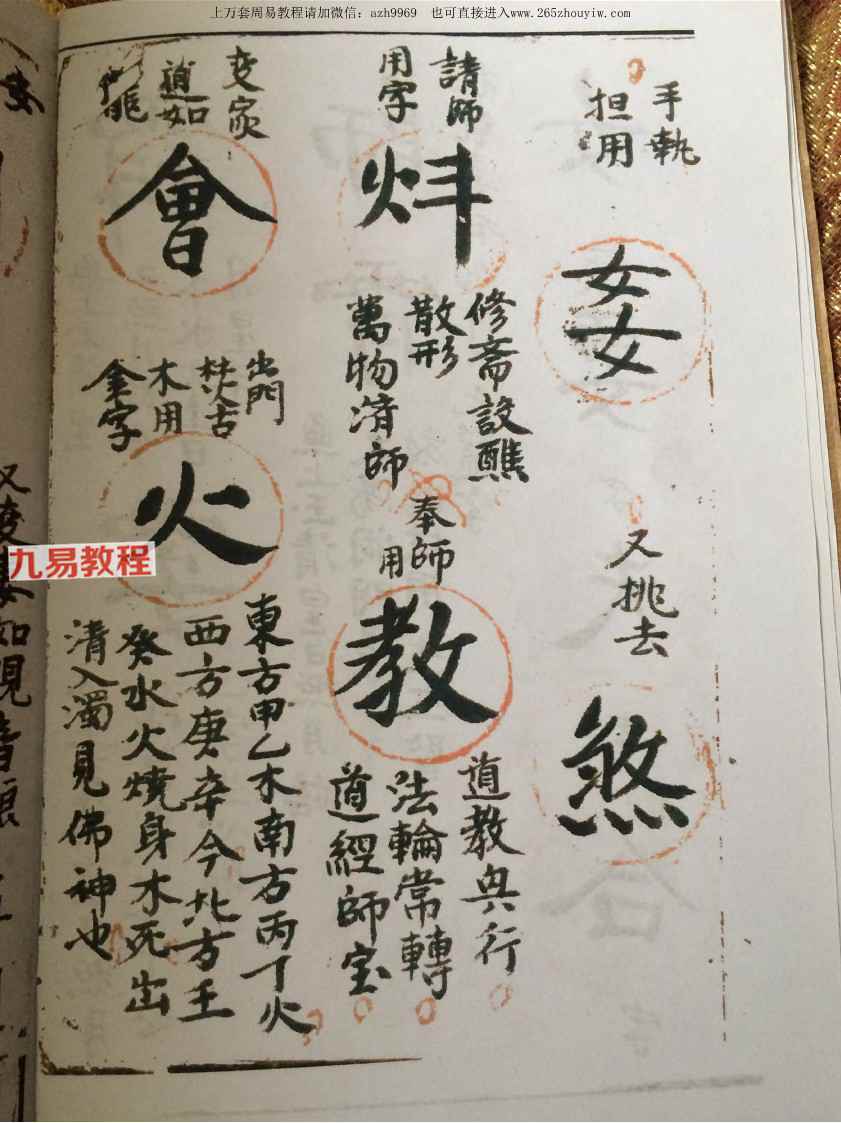 上万套周易教程请加微信：azh9969　也可直接进入www.265zhouyiw.com
手執
担用
又挑去
煞
請師
用字
修斎設醮
散形
萬物済師
奉師
用
教
道教兴行
法輪常轉
道經師宝
变家
道如
會
出門
木用
金字
火
東方甲乙木南方丙丁火
西方庚辛今北方壬
癸水火燒身木死出
清入濁見佛神也
九易教程